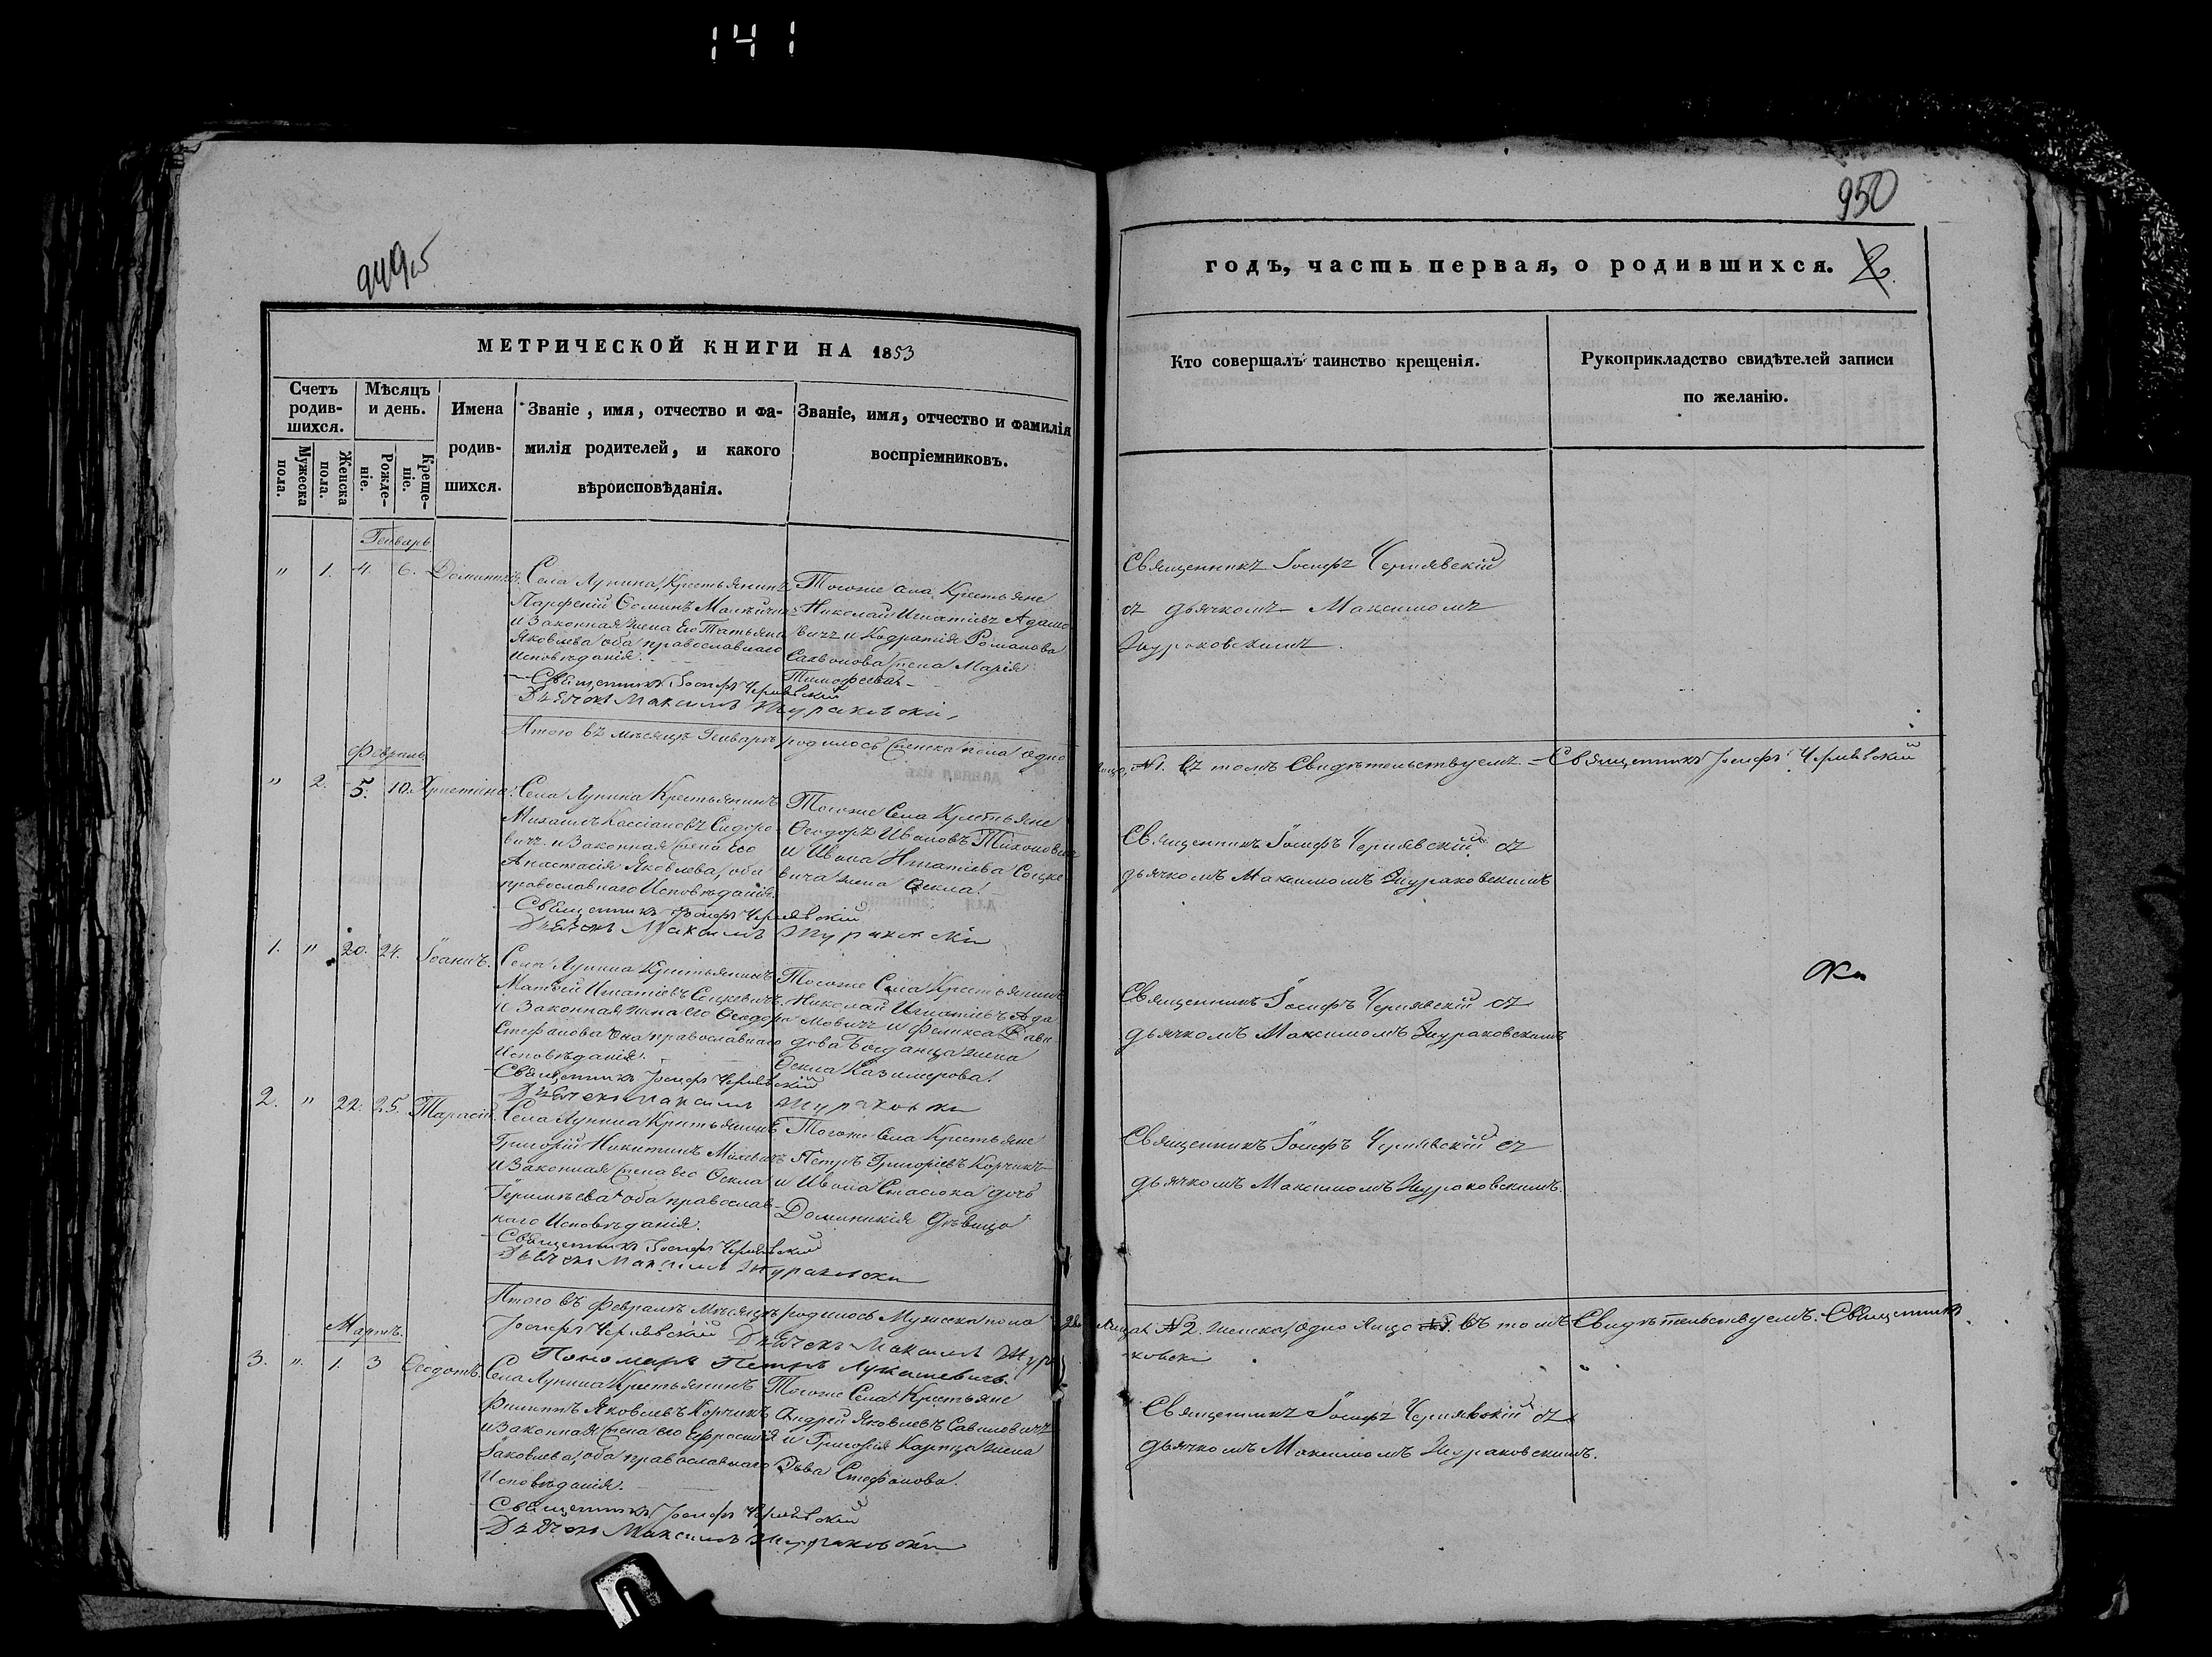 141
949об
950
МЕТРИЧЕСКОЙ КНИГИ НА 1853
Счетъ родив-
шихся.
Мужеска пола.
Женска пола.
Мѣсяцъ и день.
Рожде-
ніе.
Креще-
ніе.
Имена
родив-
шихся.
Званіе, имя, отчество и фа-
милія родителей, и какого
вѣроисповѣданія.
Званіе, имя, отчество и фамилія
воспріемниковъ.
Генварь
" 1. 4. 6.
Села Лунина, Крестьянинъ
Парфеній Ѳоминъ
и Законная жена Его Татьяна
Яковлева оба православнаго
Исповѣданія.
Тогоже села Крестьяне
Николай Игнатіевъ Адамо
вичъ и Кодратія Романова
жена Марія
Тимофеева
Священникъ Іосифъ Чернявскій
Дьячокъ Максимъ Жураковскі
Итого въ мѣсяцѣ Генварѣ родилось Женска пола одно
Февраль
" 2. 5. 10. Христина.
Села Лунина Крестьянинъ
Михаилъ Кассіановъ Сидоро
вичъ и Законная жена Его
Анастасія Яковлева, оба
православнаго Исповѣданія.
Тогоже Села Крестьяне
Ѳеодоръ Ивановъ Тихонович
и Ивана Игнатіева Соцке
вича жена Ѳекла.
Священникъ Іосифъ Чернявскій
Дьячокъ Максимъ Жураковскі
1. " 20. 24. Іоаннъ.
Села Лунина Крестьянинъ
Матѳей Игнатіевъ Соцкевичъ
и Законная жена его Ѳеодора
Стефанова оба православнаго
Исповѣданія.
Тогоже Села Крестьянинъ
Николай Игнатіевъ Ада
мовичъ и Феликса Дави
дова Богданца жена
Ѳекла Казимерова.
Священникъ Іосифъ Чернявскій
Дьячокъ Максимъ Жураковски
2. " 22. 25. Тарасій.
Села Лунина Крестьянинъ
Григорій Никитинъ
и Законная жена Его Ѳекла
оба православ-
наго Исповѣданія.
Тогоже Села Крестьяне
Петръ Григоріевъ Корчикъ
и Ивана Стасюка дочь
Доминикія дѣвица
Священникъ Іосифъ Чернявскій
Дьячокъ Максимъ Жураковски
Итого въ февралѣ Мѣсяцѣ родилось Мужеска пола
Іосифъ Чернявскій Дьячокъ Максимъ Жура
Пономарь Петръ Лукашевичъ.
Мартъ.
3. " 1. 3 Ѳеодотъ.
Села Лунина Крестьянинъ
Филиппъ Яковлевъ Корчикъ
и Законная жена его Ефросинія
Яковлева, оба православнаго
Исповѣданія.
Тогоже Села Крестьяне
Андрей Яковлевъ Савиловичъ
и Григорія Карпца жена
Стефанова.
Священникъ Іосифъ Чернявскій
Дьячокъ Максимъ Жураковскі
годъ, часть первая, о родившихся. 2.
Кто совершалъ таинство крещенія.
Рукоприкладство свидѣтелей записи
по желанію.
Священникъ Іосифъ Чернявскій
съ дьячкомъ Максимомъ
Жураковскимъ.
лицо, №1. въ томъ Свидѣтельствуемъ. Священникъ Іосифъ Чернявскій
Священникъ Іосифъ Чернявскій съ
дьячкомъ Максимомъ Жураковскимъ
Священникъ Іосифъ Чернявскій съ
дьячкомъ Максимомъ Жураковскимъ
Священникъ Іосифъ Чернявскій съ
дьячкомъ Максимомъ Жураковскимъ.
два лица №2. женска, одно лицо №1. въ томъ Свидѣтельствуемъ. Священникъ
ковски
Священникъ Іосифъ Чернявскій съ
дьячкомъ Максимомъ Жураковскимъ.